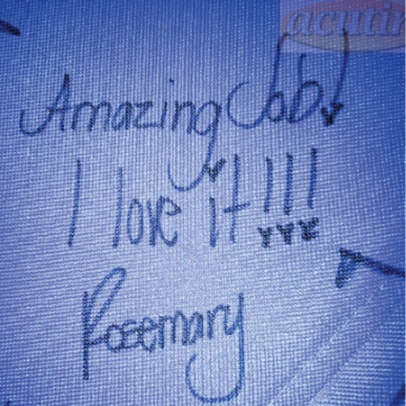 acutin
Amazing Job!
I love it!!!
Rosemary